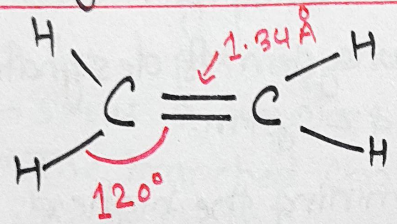 H 1.34Å H
C = C
H 120° H